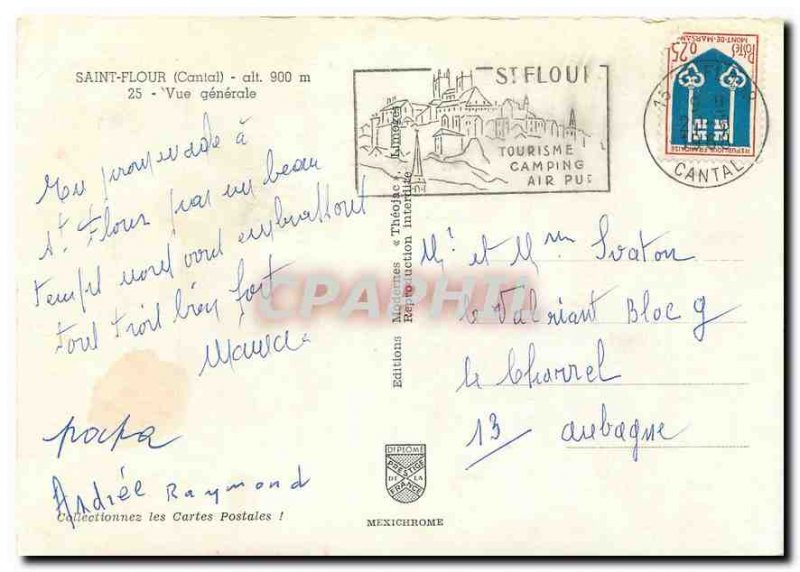 SAINT-FLOUR (Cantal) - alt. 900 m
25 - Vue générale
En promenade à
St Flour par un beau
temps nous vous embrassont
tout trois bien fort
papa
Andrée Raymond
Collectionnez les Cartes Postales !
Editions Modernes « Théojac », Limoges
Reproduction interdite
DIPLOME
PRESTIGE
DE LA
FRANCE
MEXICHROME
ST FLOUR
TOURISME
CAMPING
AIR PUR
15
CANTAL
0,25
POSTES
MONT-DE-MARSAN
REPUBLIQUE FRANÇAISE
Mr et Mme
le Valriant Bloc g
le Charrel
13 Aubagne
CPAPHIL